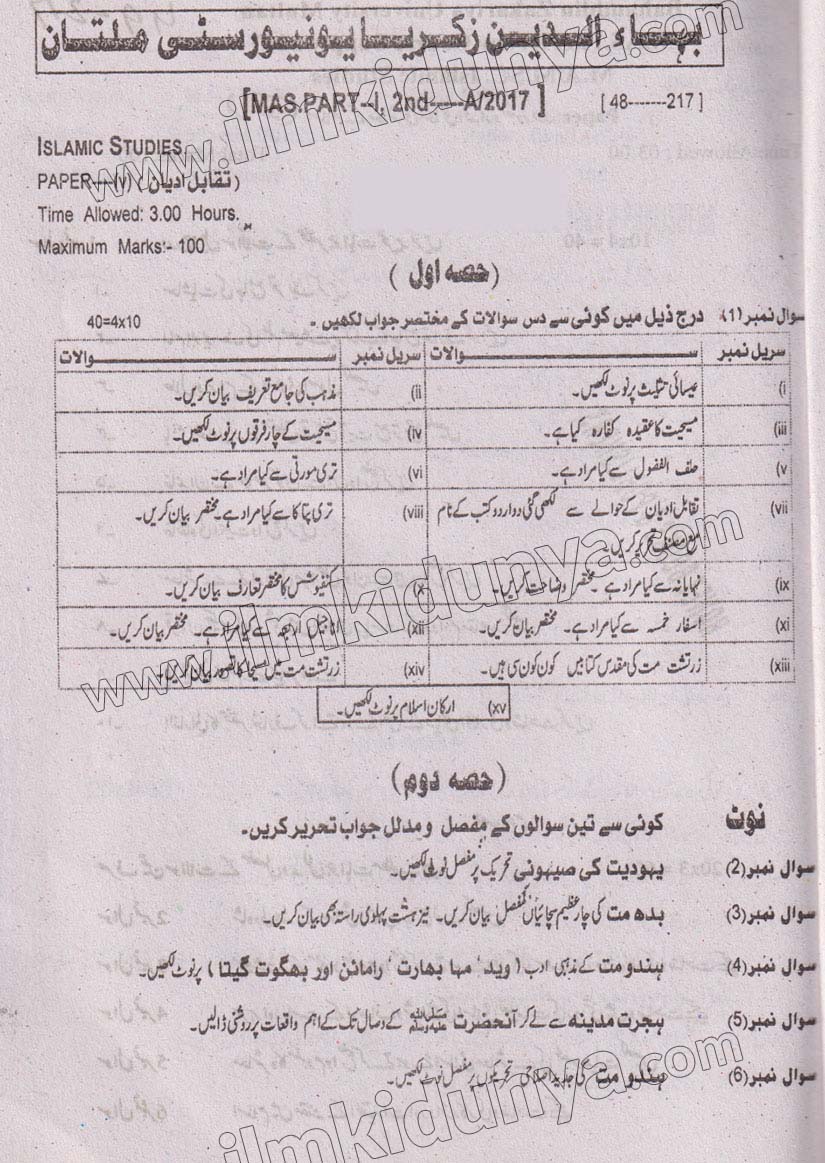 بہاء الدین زکریا یونیورسٹی ملتان
[MAS.PART--I, 2nd-----A/2017 ] [ 48-------217 ]
ISLAMIC STUDIES
PAPER----(V) (تقابل ادیان)
Time Allowed: 3.00 Hours.
Maximum Marks:- 100
(حصہ اول)
سوال نمبر (1) درج ذیل میں کوئی سے دس سوالات کے مختصر جواب لکھیں ۔ 40=4x10
سریل نمبر سوالات سریل نمبر سوالات
(i عیسائی تثلیث پر نوٹ لکھیں۔ (ii مذہب کی جامع تعریف بیان کریں۔
(iii مسیحیت کا عقیدہ کفارہ کیا ہے۔ (iv مسیحیت کے چار فرقوں پر نوٹ لکھیں۔
(v حلف الفضول سے کیا مراد ہے۔ (vi تری مورتی سے کیا مراد ہے۔
(vii تقابل ادیان کے حوالے سے لکھی گئی دو اردو کتب کے نام (viii تری پتا کا سے کیا مراد ہے۔ مختصر بیان کریں۔
مع مصنف تحریر کریں۔
(ix نہایانہ سے کیا مراد ہے۔ مختصر وضاحت کریں۔ (x کنفیوشس کا مختصر تعارف بیان کریں۔
(xi اسفار خمسہ سے کیا مراد ہے۔ مختصر بیان کریں۔ (xii اناجیل اربعہ سے کیا مراد ہے۔ مختصر بیان کریں۔
(xiii زرتشت مت کی مقدس کتابیں کون کون سی ہیں۔ (xiv زرتشت مت میں مسیحا کا تصور بیان کریں۔
(xv ارکان اسلام پر نوٹ لکھیں۔
(حصہ دوم)
نوٹ کوئی سے تین سوالوں کے مفصل و مدلل جواب تحریر کریں۔
سوال نمبر (2) یہودیت کی صیہونی تحریک پر مفصل نوٹ لکھیں۔
سوال نمبر (3) بدھ مت کی چار عظیم سچائیاں مفصل بیان کریں۔ نیز ہشت پہلوی راستہ بھی بیان کریں۔
سوال نمبر (4) ہندو مت کے مذہبی ادب (وید' مہا بھارت' رامائن اور بھگوت گیتا) پر نوٹ لکھیں۔
سوال نمبر (5) ہجرت مدینہ سے لے کر آنحضرت ﷺ کے وصال تک کے اہم واقعات پر روشنی ڈالیں۔
سوال نمبر (6) ہندو مت کی جدید اصلاحی تحریکوں پر مفصل نوٹ لکھیں۔
www.ilmkidunya.com
www.ilmkidunya.com
www.ilmkidunya.com
ilmkidunya.com